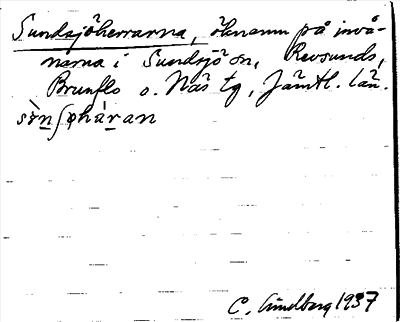 Sundsjöherrarna, öknamn på invå-
narna i Sundsjö sn, Revsunds,
Brunflo o. Näs tg, Jämtl. län.
C. Lindberg 1937